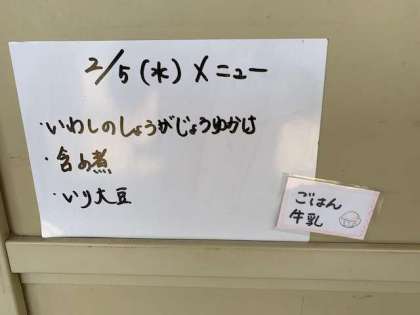 2/5(水)メニュー
・いわしのしょうがじょうゆかけ
・含め煮
・いり大豆
ごはん
牛乳